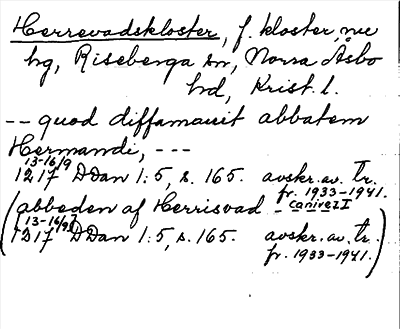 Herrevadskloster, f. kloster, nu
hg, Riseberga sn, Norra Åsbo
hd, Krist. l.
-- quod diffamauit abbatem
Hermandi, ---
13-16/9
1217 DDan 1:5, s. 165. avskr. av. tr.
fr. 1933-1941.
(abbeden af Herrisvad - canivez I
13-16/9
1217 DDan 1:5, s. 165. avskr. av. tr.
fr. 1933-1941.)